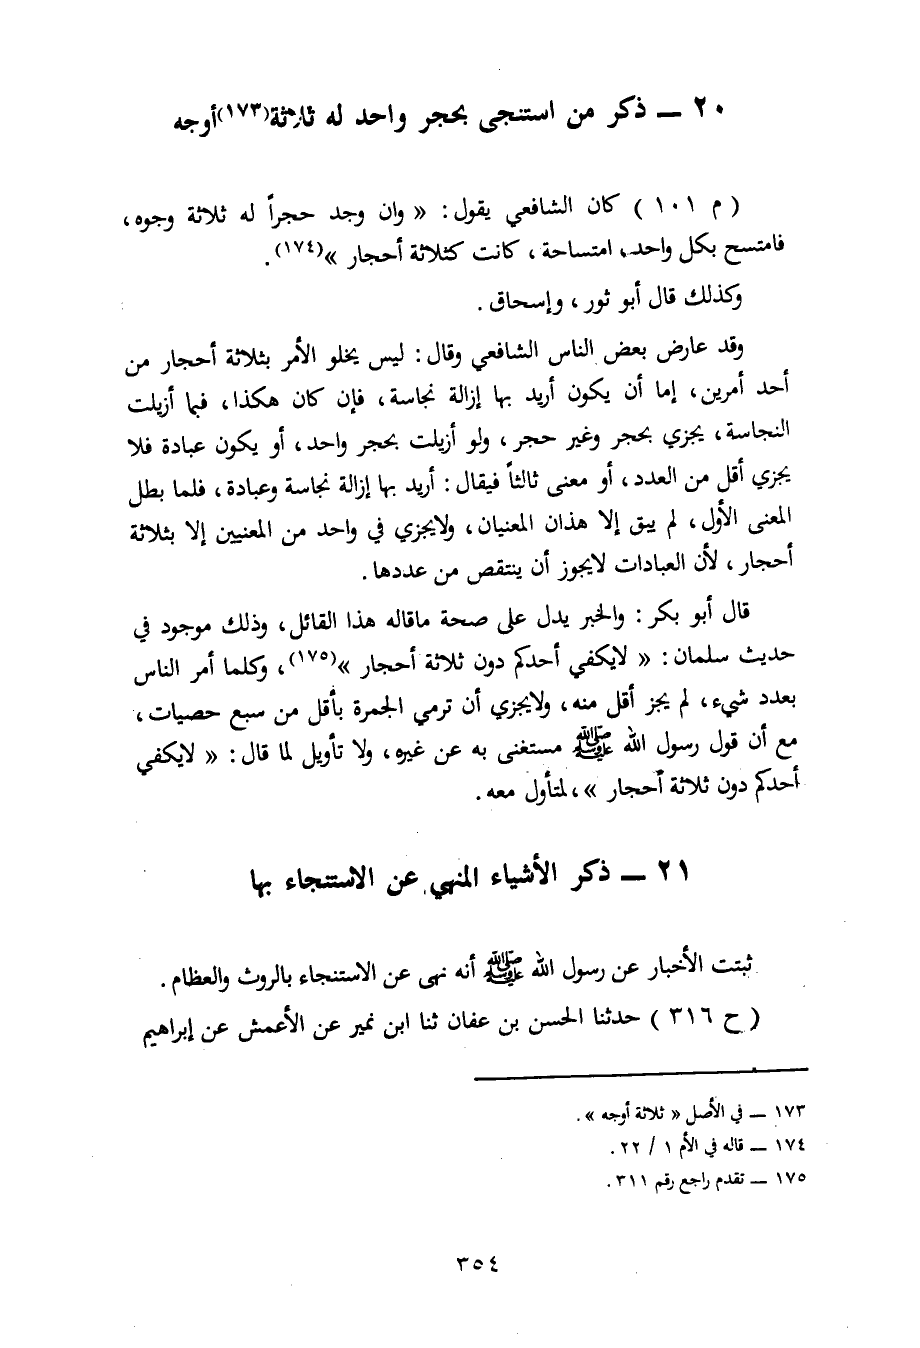 ٢٠ ــ ذكر من استنجى بحجر واحد له ثلاثة(١٧٣) أوجه
( م ١٠١ ) كان الشافعي يقول : « وان وجد حجراً له ثلاثة وجوه ،
فامتسح بكل واحد، امتساحة ، كانت كثلاثة أحجار »(١٧٤) .
وكذلك قال أبو ثور ، وإسحاق .
وقد عارض بعض الناس الشافعي وقال : ليس يخلو الأمر بثلاثة أحجار من
أحد أمرين ، إما أن يكون أريد بها إزالة نجاسة ، فإن كان هكذا ، فبما أزيلت
النجاسة ، يجزي بحجر وغير حجر ، ولو أزيلت بحجر واحد ، أو يكون عبادة فلا
يجزي أقل من العدد ، أو معنى ثالثاً فيقال : أريد بها إزالة نجاسة وعبادة ، فلما بطل
المعنى الأول ، لم يبق إلا هذان المعنيان ، ولايجزي في واحد من المعنيين إلا بثلاثة
أحجار ، لأن العبادات لايجوز أن ينتقص من عددها .
قال أبو بكر : والخبر يدل على صحة ماقاله هذا القائل ، وذلك موجود في
حديث سلمان : « لايكفي أحدكم دون ثلاثة أحجار »(١٧٥) ، وكلما أمر الناس
بعدد شيء ، لم يجز أقل منه ، ولايجزي أن ترمي الجمرة بأقل من سبع حصيات ،
مع أن قول رسول الله ﷺ مستغنى به عن غيره ، ولا تأويل لما قال : « لايكفي
أحدكم دون ثلاثة أحجار » ، لمتأول معه .
٢١ ــ ذكر الأشياء المنهي عن الاستنجاء بها
ثبتت الأخبار عن رسول الله ﷺ أنه نهى عن الاستنجاء بالروث والعظام .
( ح ٣١٦ ) حدثنا الحسن بن عفان ثنا ابن نمير عن الأعمش عن إبراهيم
١٧٣ ــ في الأصل « ثلاثة أوجه » .
١٧٤ ــ قاله في الأم ١ / ٢٢ .
١٧٥ ــ تقدم راجع رقم ٣١١ .
٣٥٤